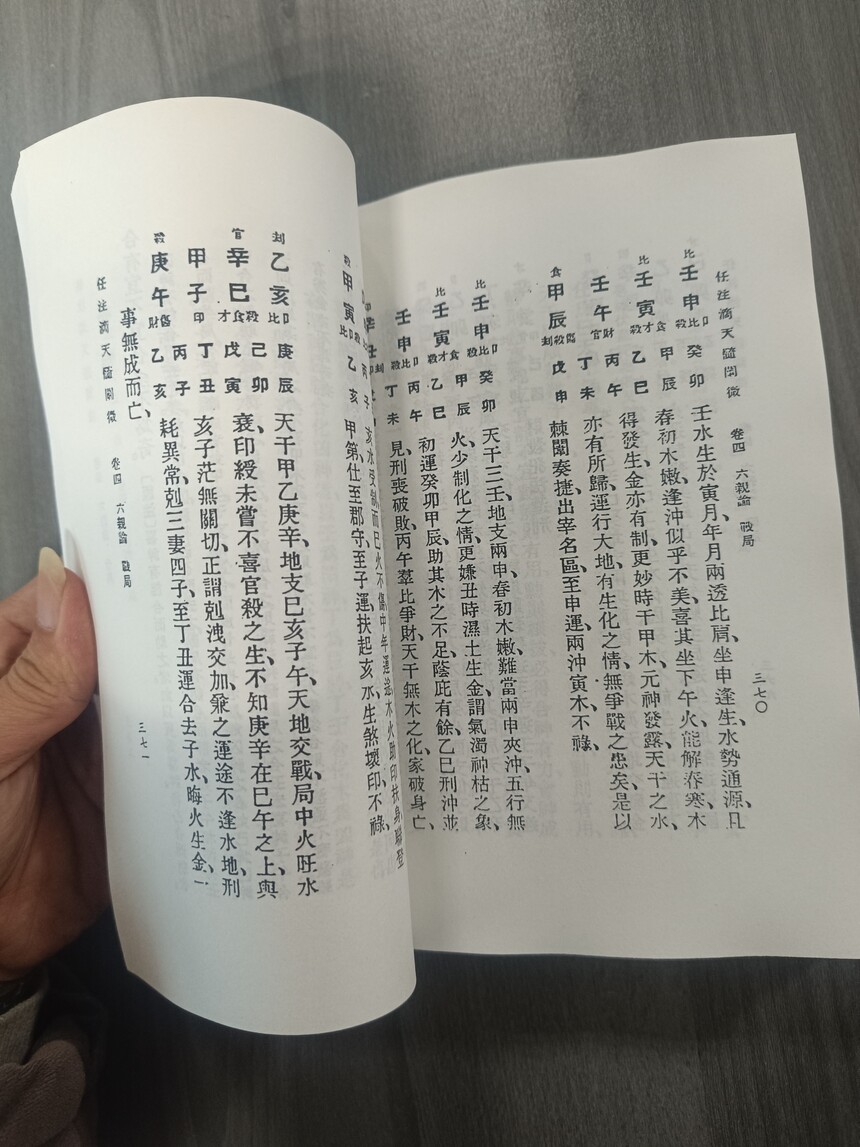 任注滴天髓闡微 卷四 六親論 戰局 三七〇
比 壬申 卩比殺 癸卯
比 壬寅 食才殺 甲辰 乙巳
壬午 財官 丙午 丁未
食 甲辰 傷殺刦 戊申
壬水生於寅月年月兩透比肩、坐申逢生、水勢通源、且
春初水嫩、逢沖似乎不美、喜其坐下午火、能解春寒、木
得發生、金亦有制、更妙時干甲木、元神發露、天干之水、
亦有所歸、運行大地、有生化之情、無爭戰之患矣、是以
棘闈奏捷、出宰名區、至申運、兩沖寅木、不祿、
比 壬申 卩比殺 癸卯
比 壬寅 食才殺 甲辰 乙巳
壬申 卩比殺 丙午 丁未
天干三壬、地支兩申、春初木嫩、難當兩申夾沖、五行無
火、少制化之情、更嫌丑時濕土生金、謂氣濁神枯之象、
初運癸卯甲辰、助其木之不足、蔭庇有餘、乙巳刑沖並
見、刑喪破敗、丙午羣比爭財、天干無木之化、家破身亡、
殺 甲寅 乙亥
亥水受制、而巳火不傷、中年運途木火、助印扶身、聯登
甲第、仕至郡守、至子運、扶起亥水、生煞壞印、不祿、
刦 乙亥 卩比 庚辰
官 辛巳 殺食才 己卯 戊寅
甲子 印 丁丑 丙子
殺 庚午 傷財 乙亥
天干甲乙庚辛、地支巳亥子午、天地交戰、局中火旺水
衰、印綬未嘗不喜官殺之生、不知庚辛在巳午之上、與
亥子茫無關切、正謂剋洩交加、兼之運途不逢水地、刑
耗異常、剋三妻四子、至丁丑運、合去子水、晦火生金、一
事無成而亡、
任注滴天髓闡微 卷四 六親論 戰局 三七一